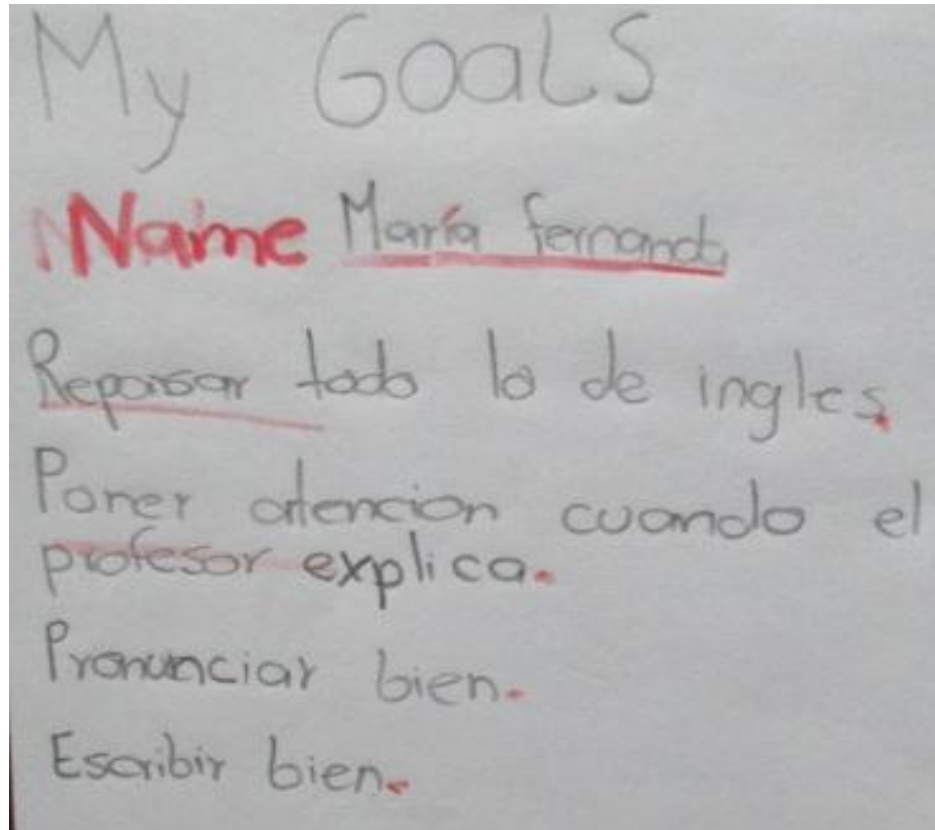 My GoaLS
Name María fernanda
Repasar todo lo de ingles.
Poner atencion cuando el
profesor explica.
Pronunciar bien.
Escribir bien.